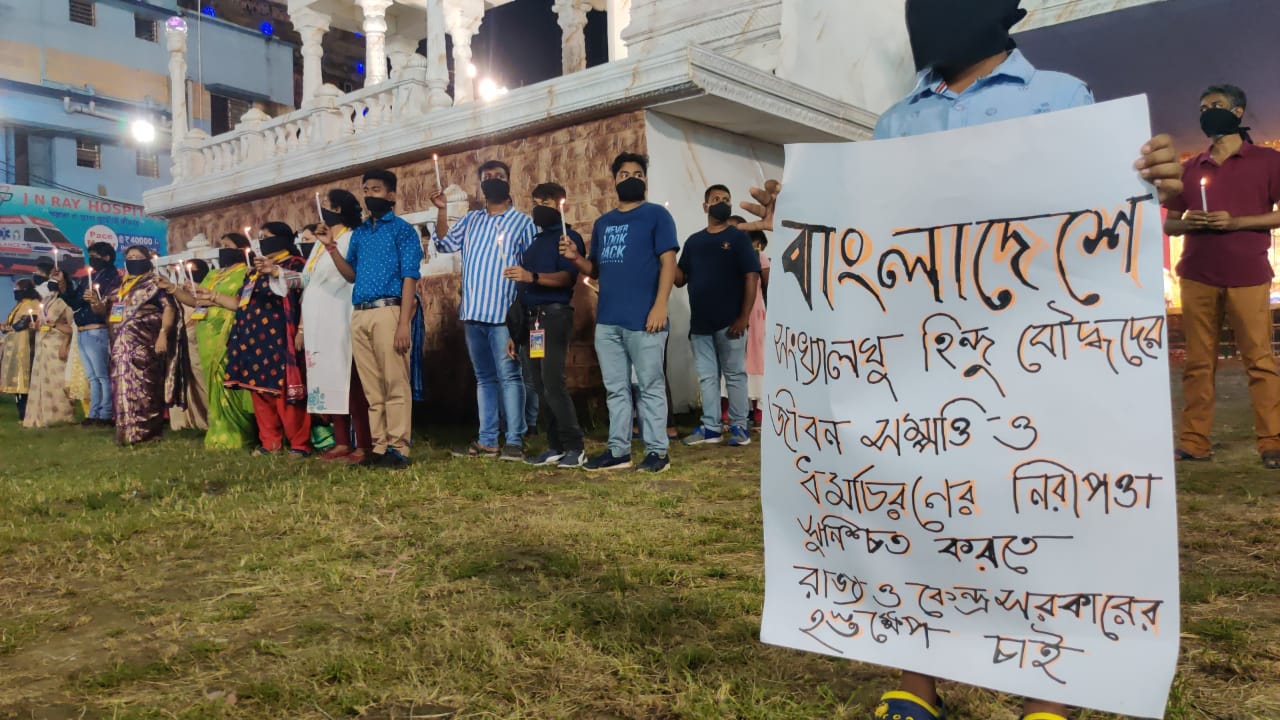 J N RAY HOSPIT
₹40000
NEVER
LOOK
BACK
বাংলাদেশে
সংখ্যালঘু হিন্দু বৌদ্ধদের
জীবন সম্পত্তি ও
ধর্মাচরণের নিরাপত্তা
সুনিশ্চিত করতে
রাজ্য ও কেন্দ্র সরকারের
হস্তক্ষেপ চাই